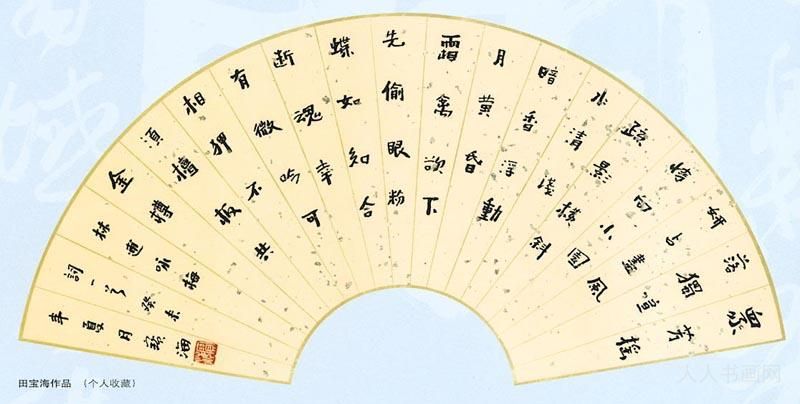 眾芳摇
落獨喧
妍占盡風
情向小園
疏影横斜
水清淺
暗香浮動
月黄昏
霜禽欲下
先偷眼粉
蝶如知合
断魂幸
有微吟可
相狎不
須檀板共
金樽
林逋咏梅
詞一首癸未
年夏月寶海
田宝海作品 (个人收藏)
人人书画网